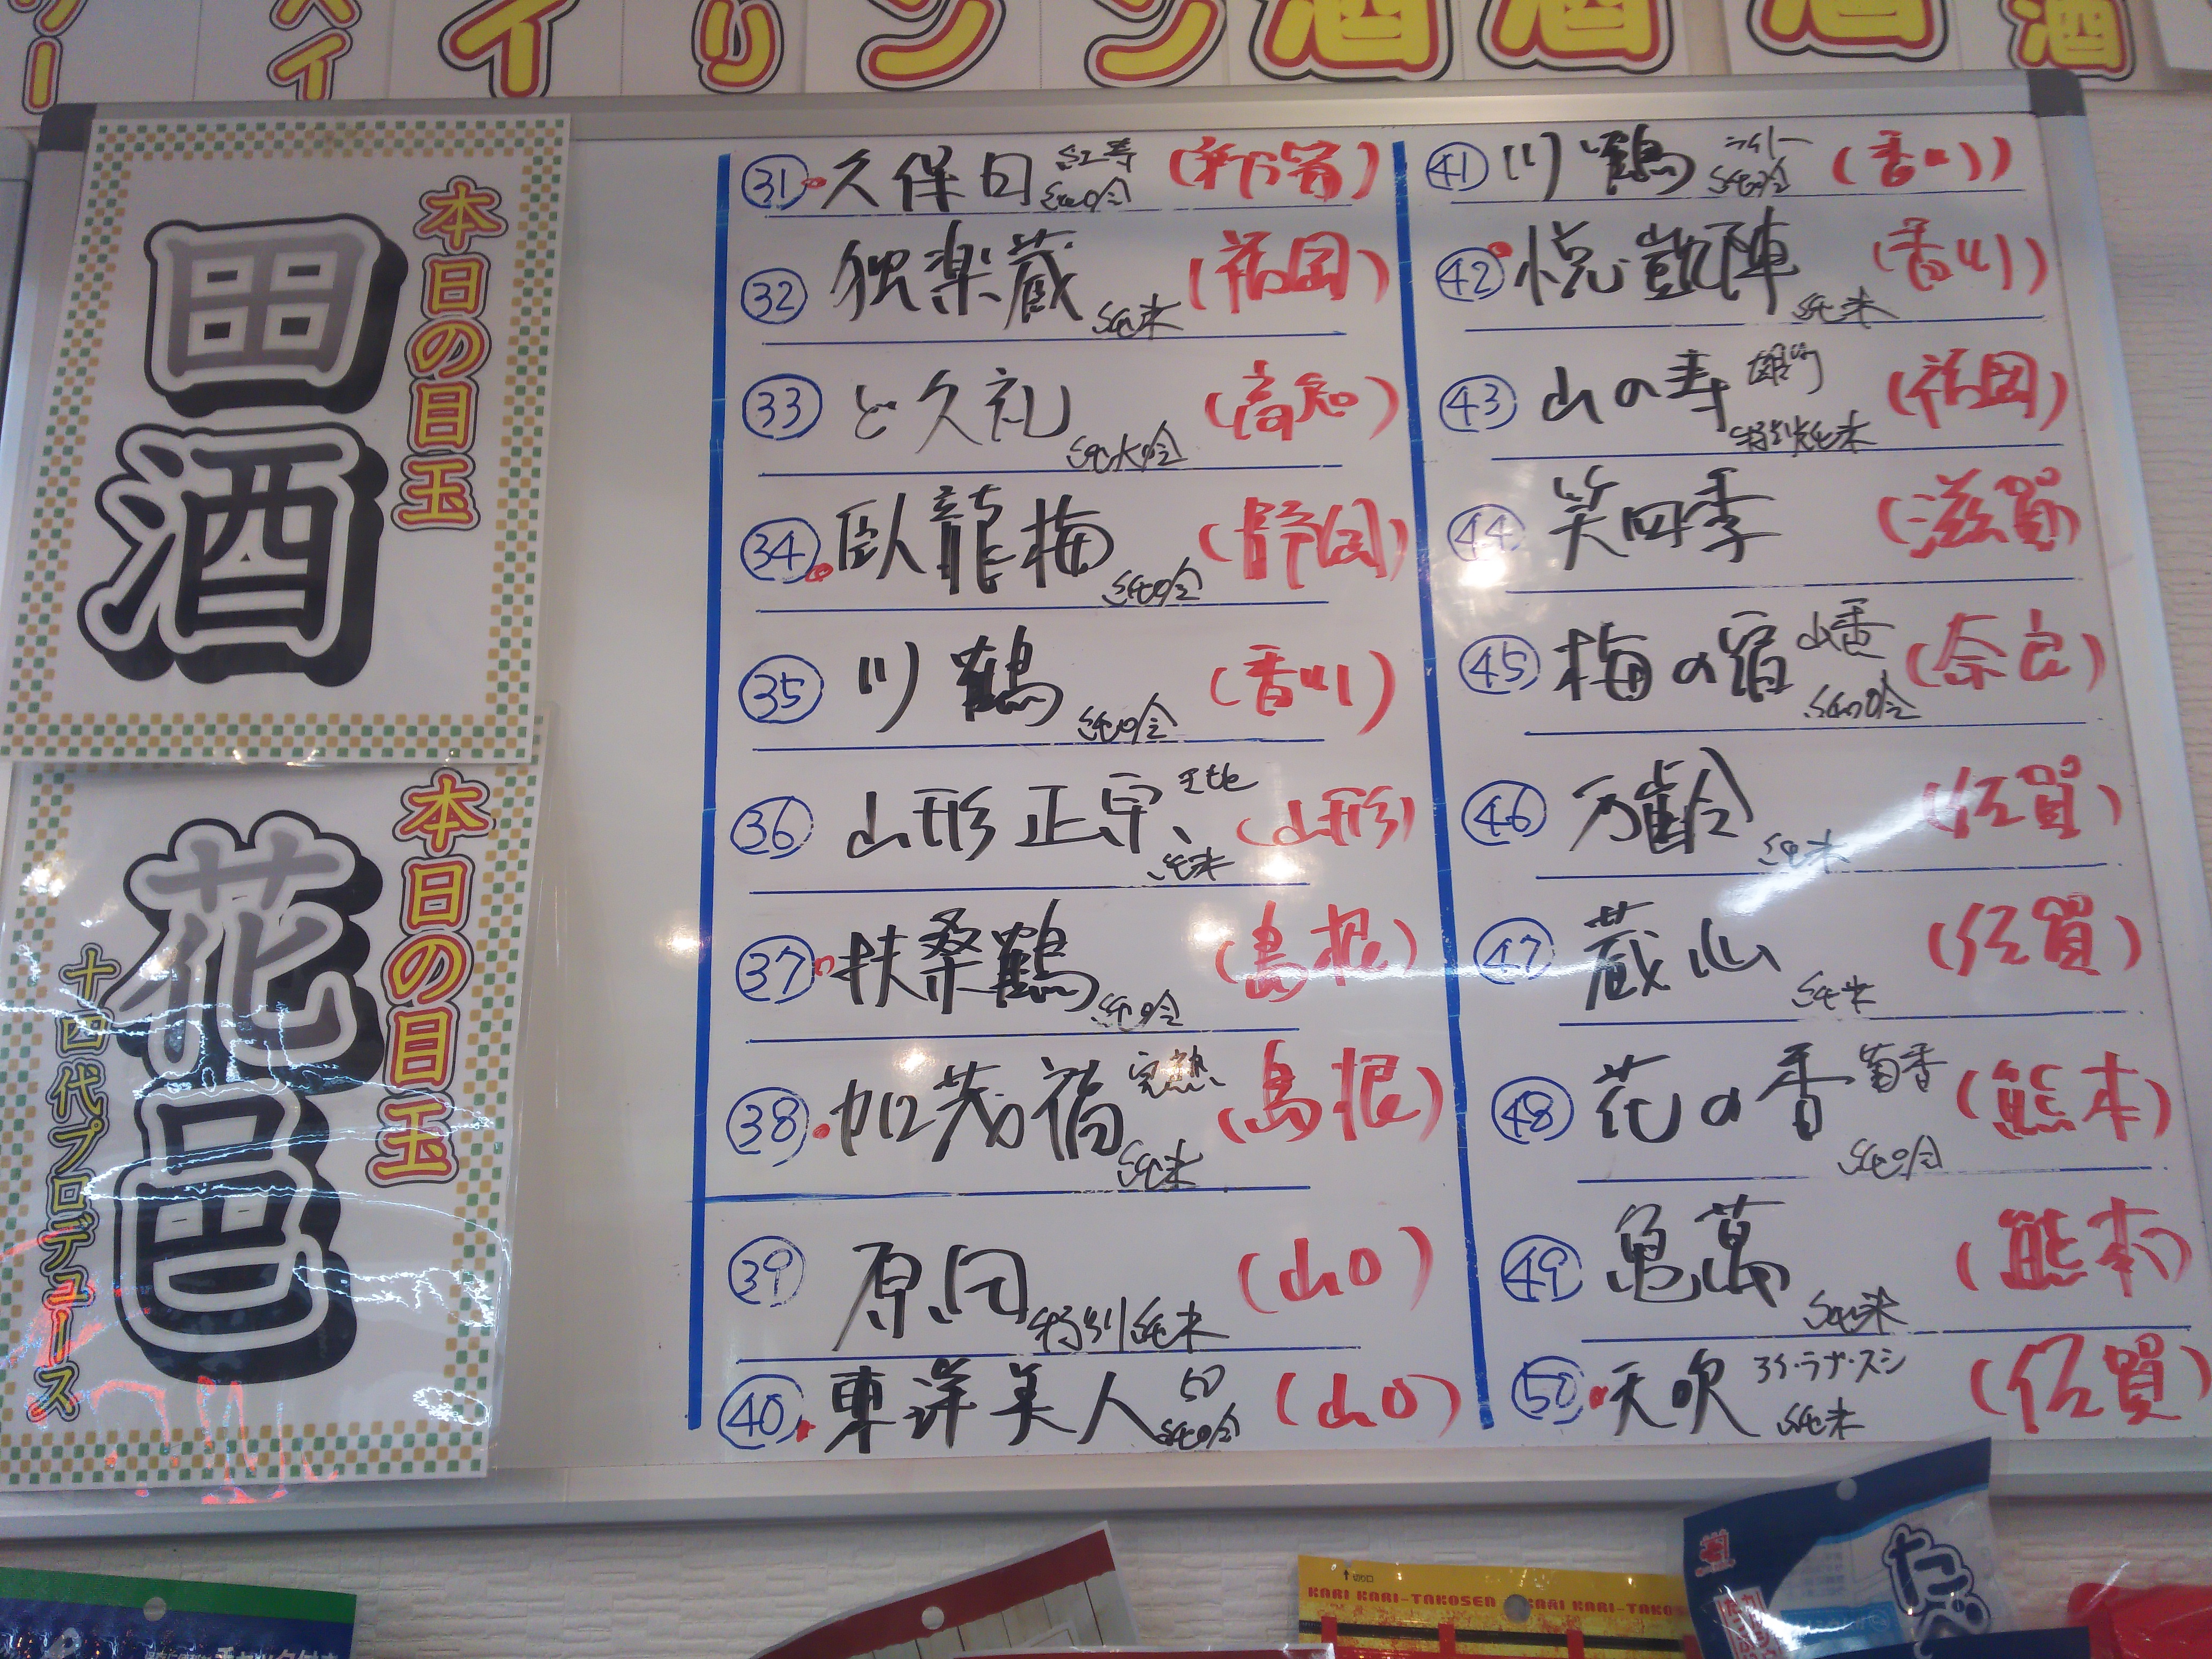 本日の目玉
田酒
本日の目玉
花邑
十四代プロデュース
㉛ 久保田 紅寿 純吟 (新潟)
㉜ 独楽蔵 純米 (福岡)
㉝ ど久礼 純大吟 (高知)
㉞ 臥龍梅 純吟 (静岡)
㉟ 川鶴 純吟 (香川)
㊱ 山形正宗 純米 (山形)
㊲ 扶桑鶴 純吟 (島根)
㊳ 加茂福 完熟 純米 (島根)
㊴ 原田 特別純米 (山口)
㊵ 東洋美人 50 純吟 (山口)
㊶ 川鶴 純吟 (香川)
㊷ 悦凱陣 純米 (香川)
㊸ 山の寿 雄町 特別純米 (福岡)
㊹ 笑四季 (滋賀)
㊺ 梅の宿 山香 純吟 (奈良)
㊻ 万齢 純米 (佐賀)
㊼ 蔵心 純米 (佐賀)
㊽ 花の香 菊香 純吟 (熊本)
㊾ 亀萬 純米 (熊本)
㊿ 天吹 アイ・ラブ・スシ 純米 (佐賀)
KARI KARI-TAKOSEN KARI KARI-TAKOS